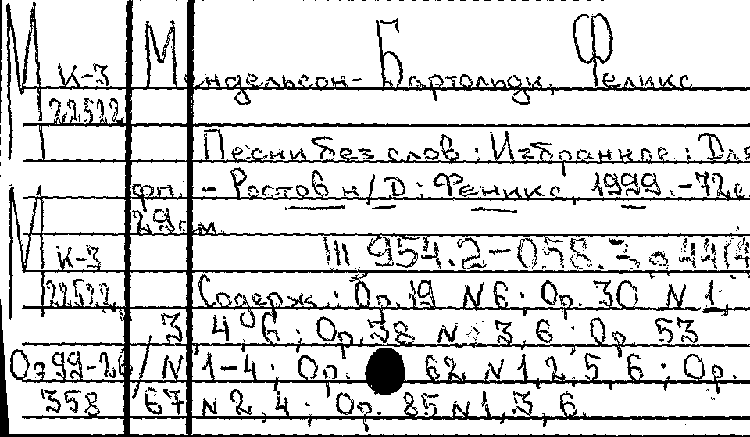 М Мендельсон-Бартольди, Феликс
К-3
22522
Песни без слов : Избранное : Для
фп. - Ростов н/Д : Феникс, 1999. -72с
29см.
М
К-3
22522
Ш 954.2-058.3
Содерж.: Ор.19 N6; Ор. 30 N 1,
3, 4, 6 ; Ор.38 N 3, 6 ; Ор. 53
N 1-4 ; Ор. 62 N 1,2,5,6 ; Ор.
358 67 N 2, 4 ; Ор. 85 N1,3,6.